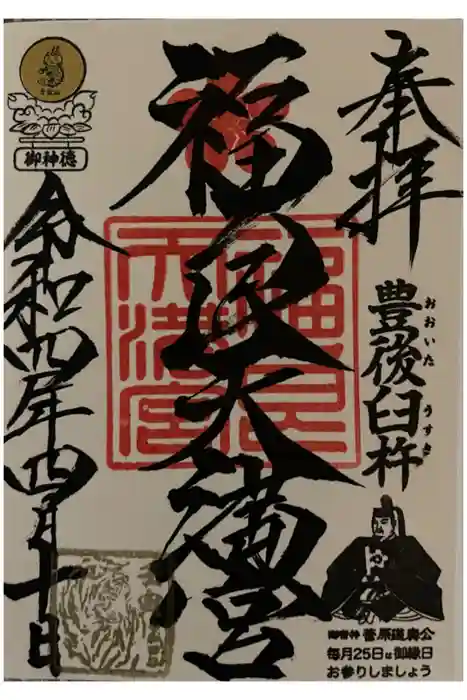 奉拝
豊後臼杵
おおいた
うすき
福良天満宮
御祭神 菅原道真公
毎月25日は御縁日
お参りしましょう
御神徳
令和四年四月十日